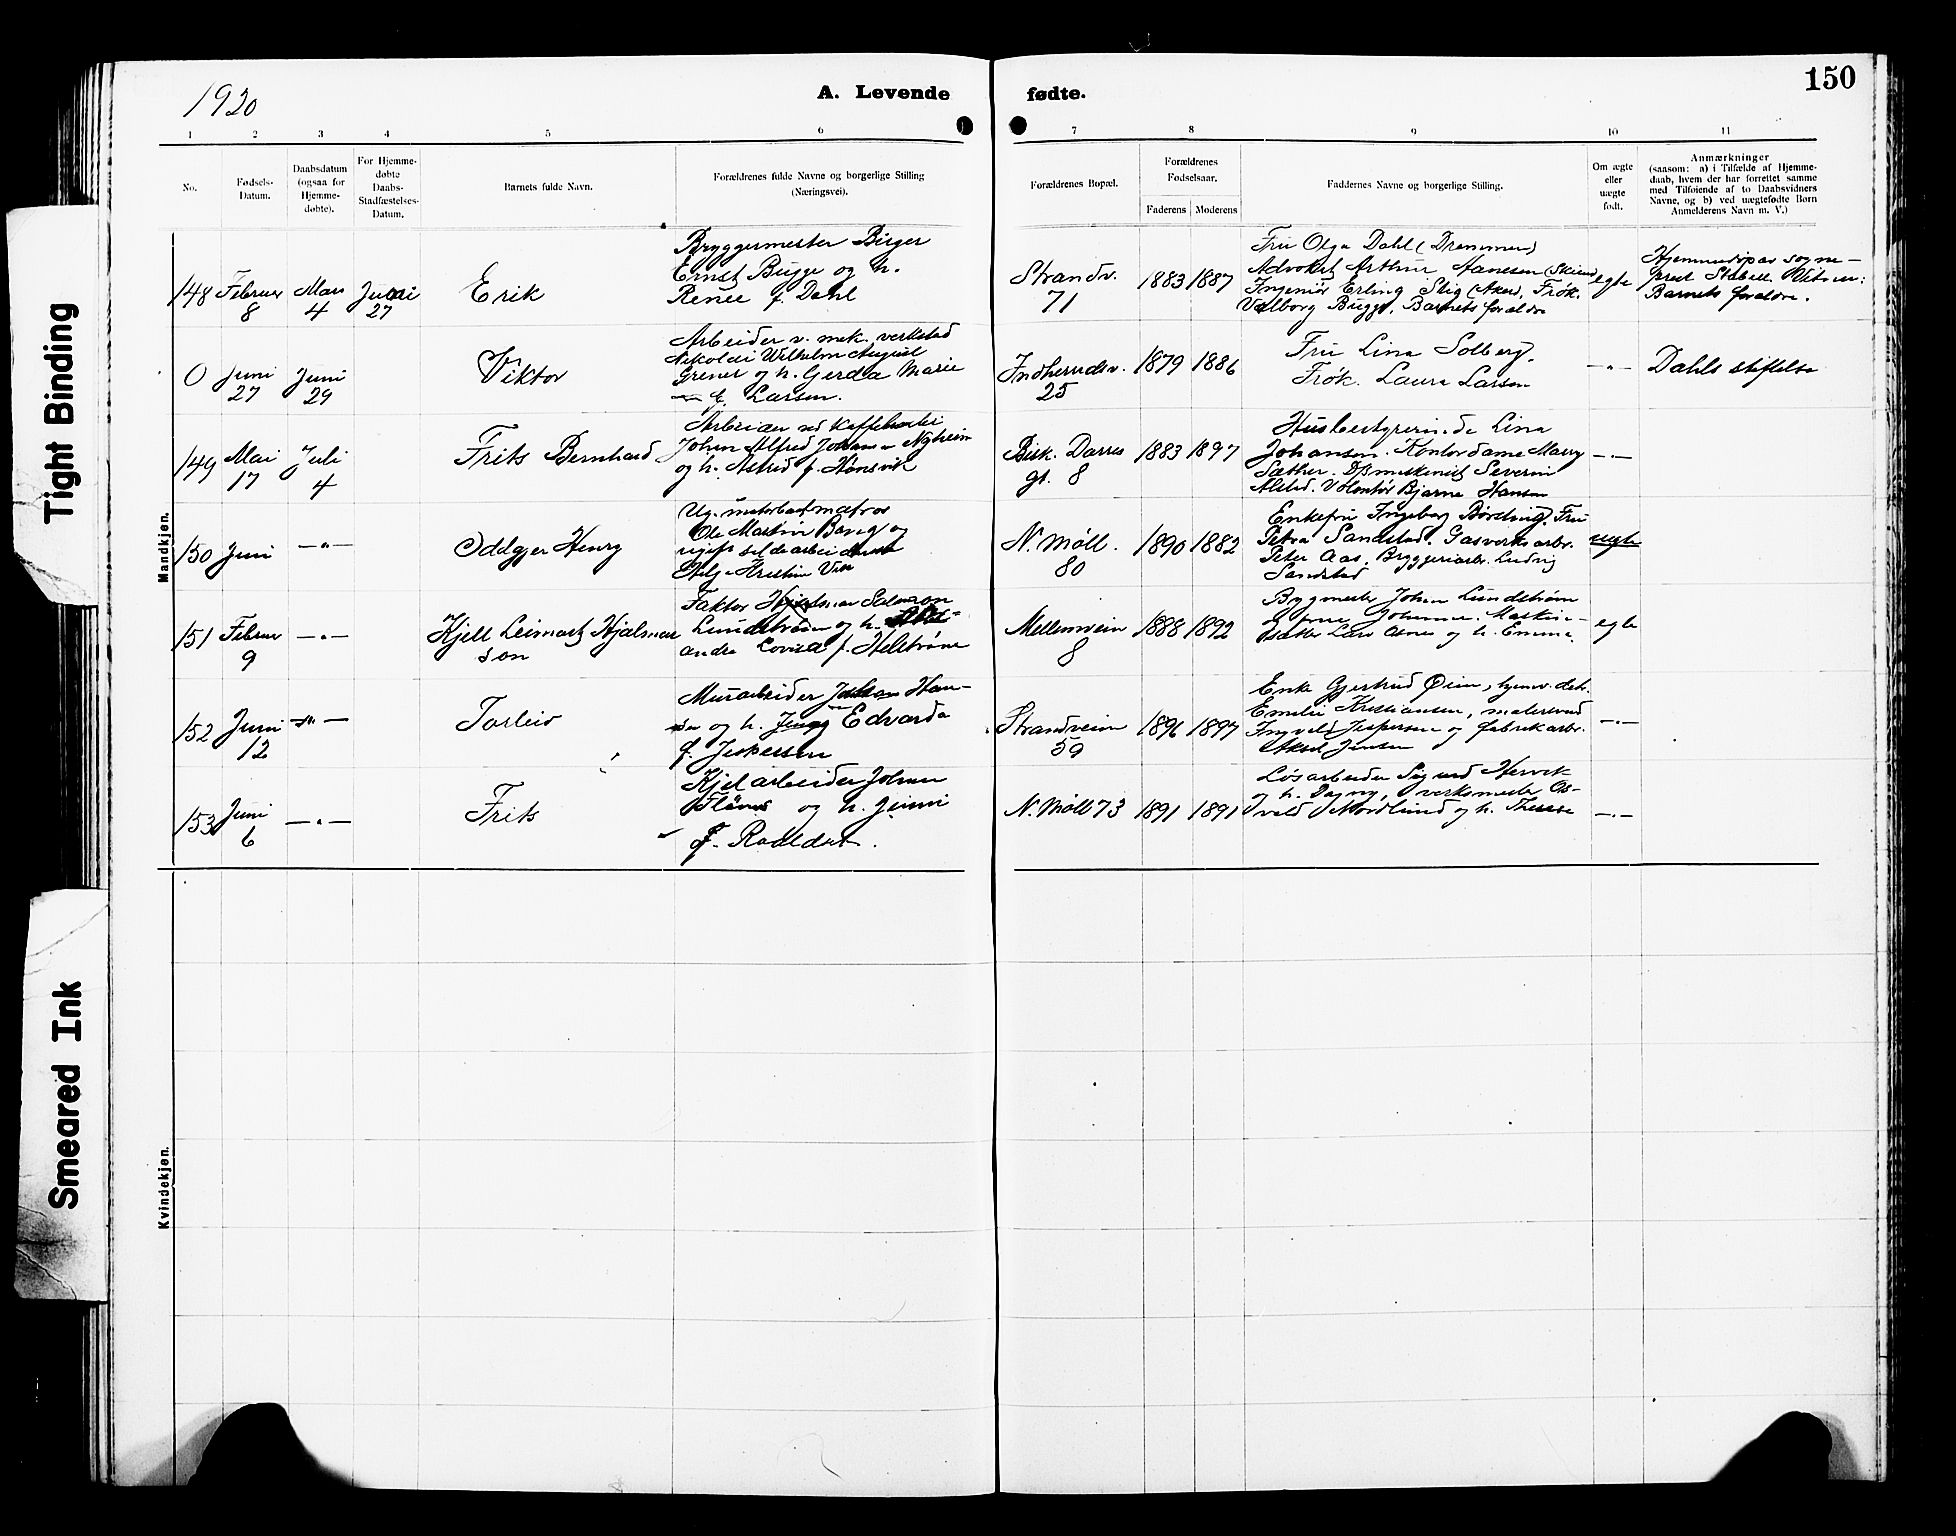 Tight Binding
Smeared Ink
1920
A. Levende
fødte.
150
1
2
3
4
5
6
7
8
9
10
11
No.
Fødsels-
Datum.
Daabsdatum
(ogsaa for
Hjemme-
døbte).
For Hjemme-
døbte
Daabs-
Stadfæstelses-
Datum.
Barnets fulde Navn.
Forældrenes fulde Navne og borgerlige Stilling
(Næringsvei).
Forældrenes Bopæl.
Forældrenes
Fødselsaar.
Faderens
Moderens
Faddernes Navne og borgerlige Stilling.
Om ægte
eller
uægte
født.
Anmærkninger
(saasom: a) i Tilfælde af Hjemme-
daab, hvem der har forrettet samme
med Tilføiende af to Daabsvidners
Navne, og b) ved uægtefødte Børn
Anmelderens Navn m. V.)
Mandkjøn.
148 Februar 8
Mars 4
Juni 27
Erik
Bryggermester Birger
Ernst Bugge og h.
Renée f. Dahl
Strandv.
71
1883 1887
Fru Olga Dahl (Drammen)
Advokat Arthur Hansen (Skien)
Ingeniør Erling Stig (Aker), Frøk.
Valborg Bugge, Barnets forældre
egte
Hjemmedøpt av sogne-
prest Stabell. Vitner:
Barnets forældre.
0 Juni 27
Juni 29
Viktor
Arbeider v. mek. verksted
Nikolai Wilhelm August
Grener og h. Gerda Marie
f. Larsen.
Indherredsv.
25
1879 1886
Fru Lina Solberg.
Frøk. Laura Larsen
-"-
Dahls stiftelse
149 Mai 17
Juli 4
Frits Bernhard
Arbeider ved Kaffehandel
Johan Alfred Johansen Nyheim
og h. Astrid f. Hønsvik
Bisk. Darres
gt. 8
1883 1897
Husbestyrerinde Lina
Johansen. Kontordame Marry
Sæther. D/Smaskinist Severin
Alstad. Volontør Bjarne Hansen
-"-
150 Juni
-"-
Oddgjer Henry
Ug. motorbaatmatros
Ole Martin Bovig og
ugift sildearbeiderske
Helga Kristine Vik
N. Møll.
80
1890 1882
Enkefru Ingeborg Børsting, Fru
Petra Sandstad. Gasverksarbr.
Peter Aas. Bryggeriarbr. Ludvig
Sandstad
uegte
151 Februar 9
-"-
Kjell Leinart Hjalmar
son
Faktor Hjalmar Salomon
Lundstrøm og h.
andra Lovisa f. Helstrøm
Mellemveien
8
1888 1892
Bygmester Johan Lundstrøm
og frue Johanne. Maskin-
sætter Lars Aanes og h. Emma.
egte
152 Juni 12
-"-
Torleiv
Murarbeider Johan Han-
sen og h. Jenny Edvarda
f. Jespersen
Strandveien
59
1896 1897
Enke Gjertrud Øien, hjemv. dtr.
Emilie Kristiansen, malersvend
Ingvald Jespersen og fabrikarbr.
Aksel Jensen
-"-
153 Juni 6
-"-
Frits
Kjelarbeider Johan
Flønes og h. Jenni
f. Roaldset.
N. Møll 73
1891 1891
Løsarbeider Sigurd Hervik
og h. Dagny, verksmester Os-
vald Nordlund og h. Therese
-"-
Kvindekjøn.